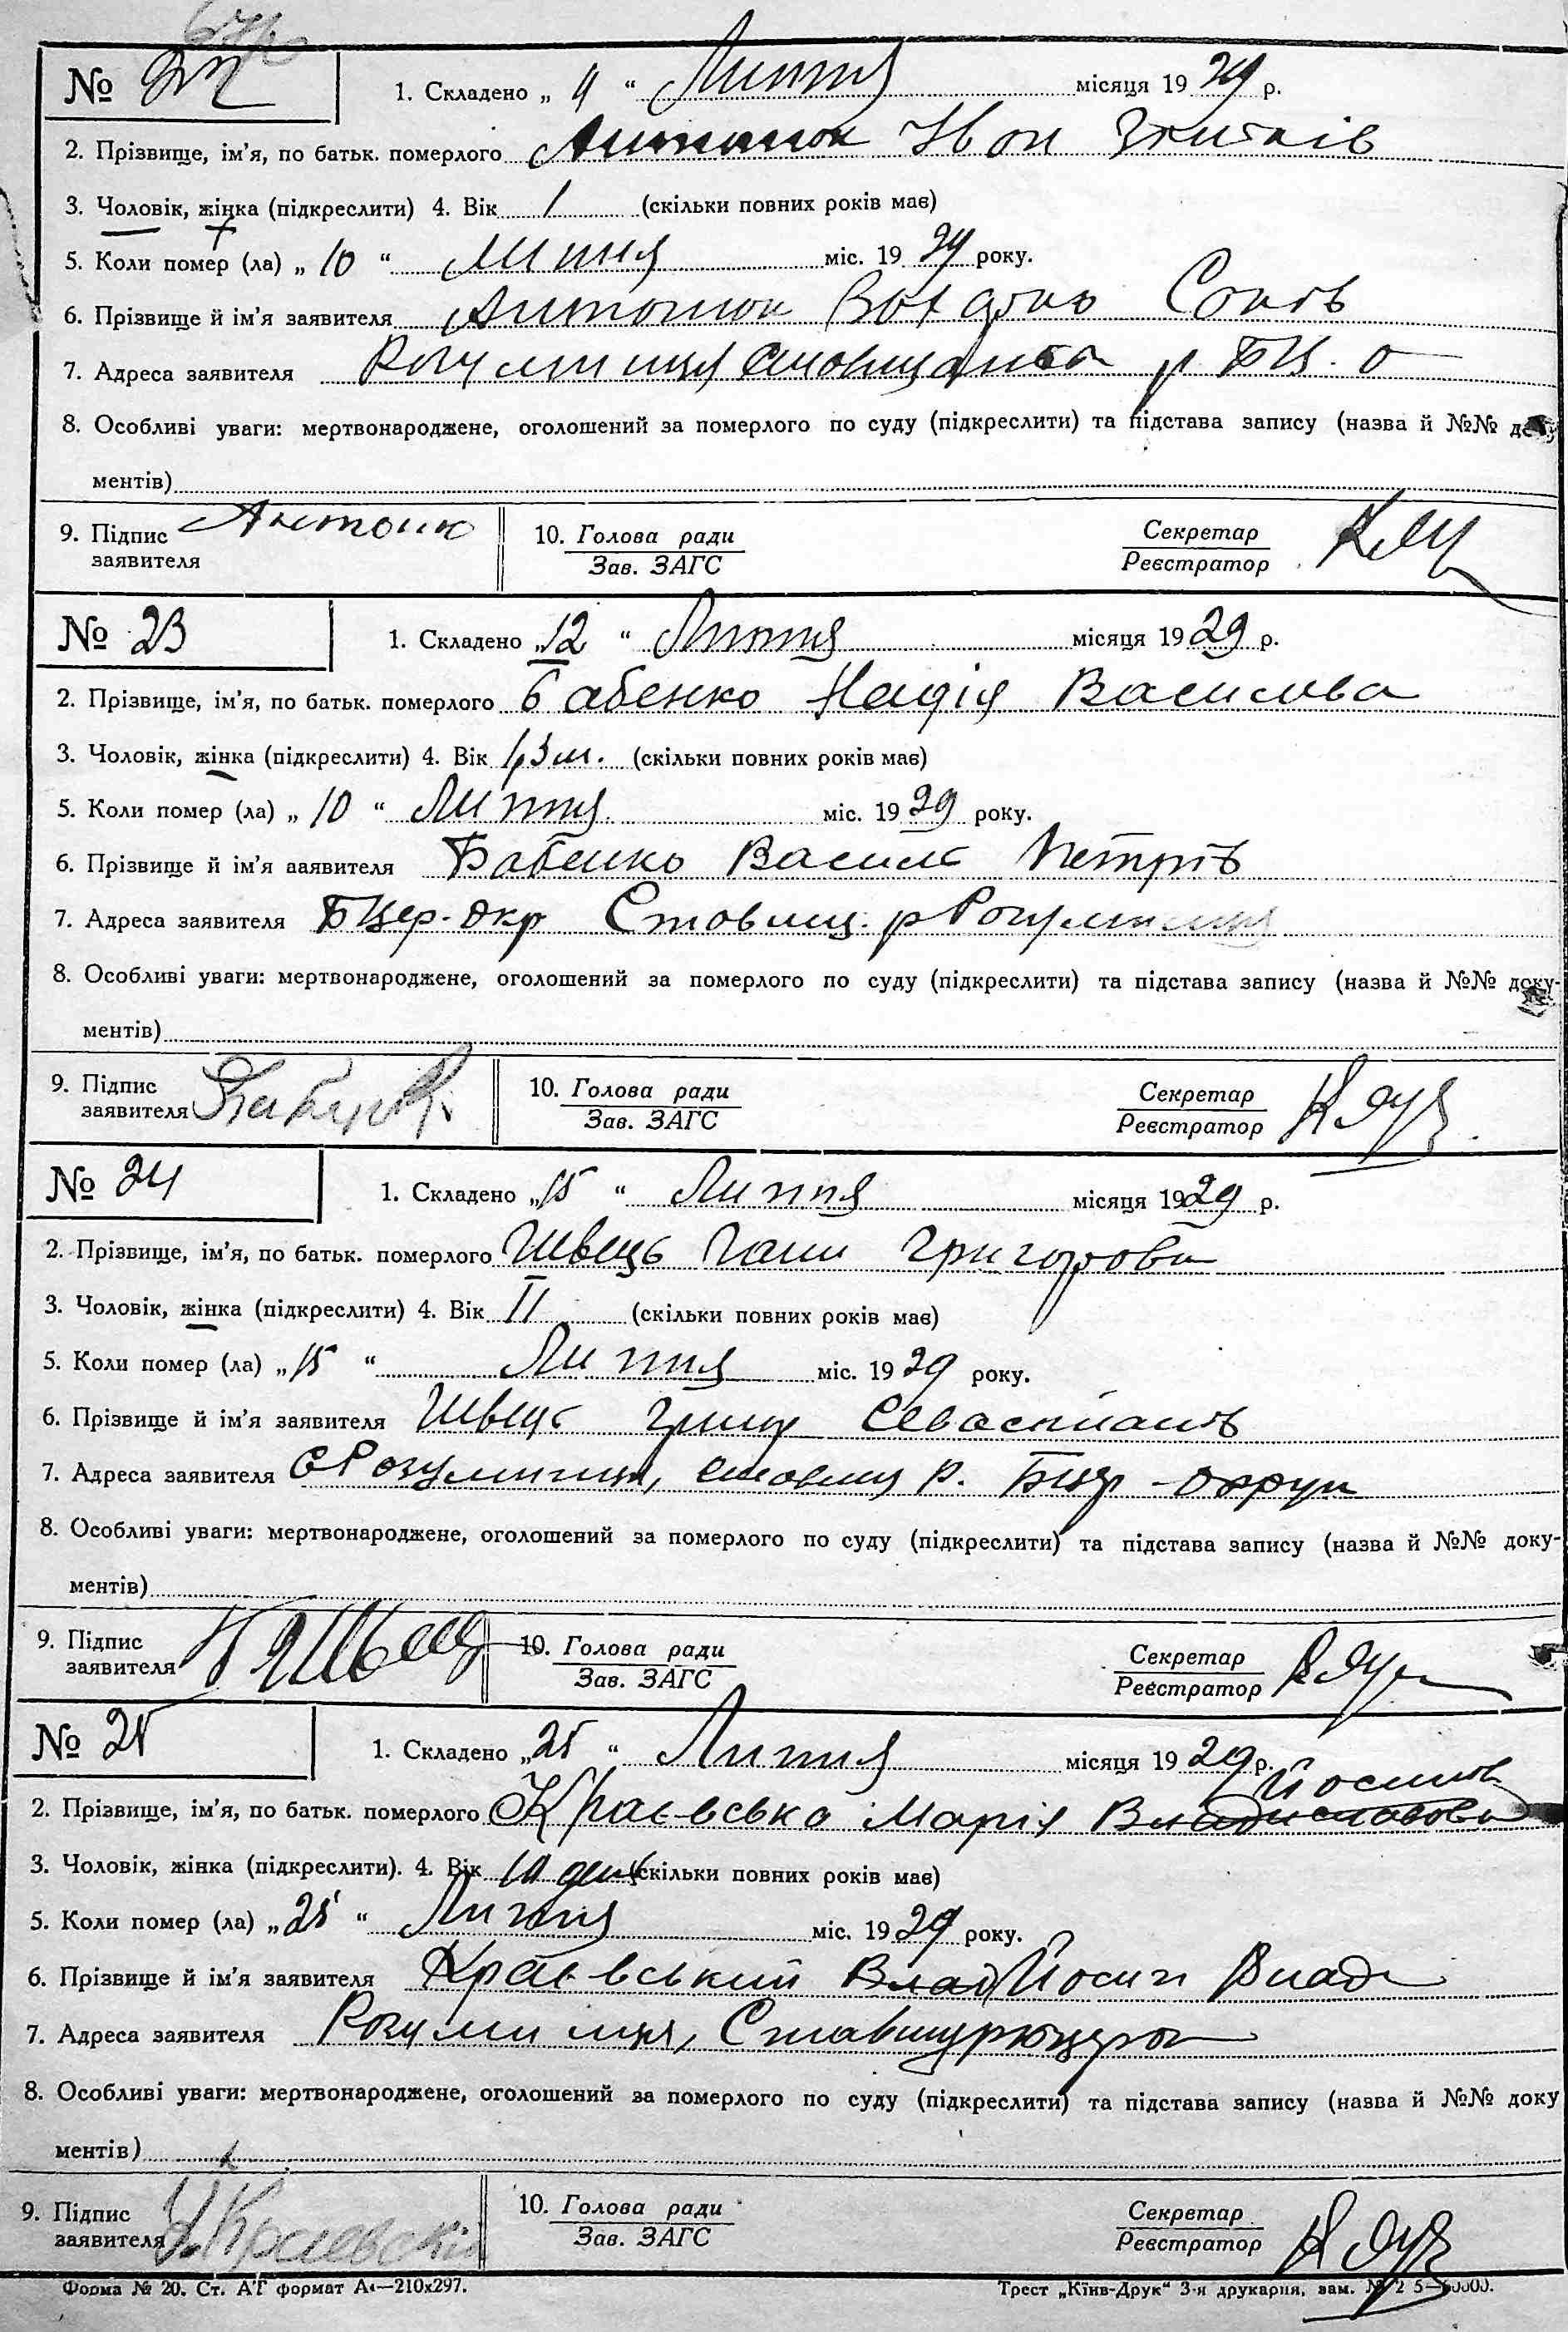 № 22
1. Складено „ 11 “ Липня місяця 19 29 р.
2. Прізвище, ім'я, по батьк. померлого Антонюк Ивон
3. Чоловік, жінка (підкреслити) 4. Вік 1 (скільки повних років має)
5. Коли помер (ла) „ 10 “ Липня міс. 19 29 року.
6. Прізвище й ім'я заявителя Антонюк
7. Адреса заявителя р БЦ. о
8. Особливі уваги: мертвонароджене, оголошений за померлого по суду (підкреслити) та підстава запису (назва й №№ доку-
ментів)
9. Підпис Антонюк 10. Голова ради Секретар
заявителя Зав. ЗАГС Реєстратор
№ 23
1. Складено „ 12 “ Липня місяця 19 29 р.
2. Прізвище, ім'я, по батьк. померлого Бабенко Надія Василева
3. Чоловік, жінка (підкреслити) 4. Вік 1,3 м. (скільки повних років має)
5. Коли помер (ла) „ 10 “ Липня міс. 19 29 року.
6. Прізвище й ім'я ааявителя Бабенко Василь Петрів
7. Адреса заявителя БЦер. окр Стовищ. р Розумниця
8. Особливі уваги: мертвонароджене, оголошений за померлого по суду (підкреслити) та підстава запису (назва й №№ доку-
ментів)
9. Підпис 10. Голова ради Секретар
заявителя Зав. ЗАГС Реєстратор
№ 24
1. Складено „ 15 “ Липня місяця 19 29 р.
2. Прізвище, ім'я, по батьк. померлого Швець Ганя Григорова
3. Чоловік, жінка (підкреслити) 4. Вік II (скільки повних років має)
5. Коли помер (ла) „ 15 “ Липня міс. 19 29 року.
6. Прізвище й ім'я заявителя Швець Севастіанів
7. Адреса заявителя С Розумниця, ставищ р. Бцер - округи
8. Особливі уваги: мертвонароджене, оголошений за померлого по суду (підкреслити) та підстава запису (назва й №№ доку-
ментів)
9. Підпис Швець 10. Голова ради Секретар
заявителя Зав. ЗАГС Реєстратор
№ 25
1. Складено „ 25 “ Липня місяця 19 29 р.
Йосипов
2. Прізвище, ім'я, по батьк. померлого Краєвська Марія Владиславова
3. Чоловік, жінка (підкреслити). 4. Вік 10 ден (скільки повних років має)
5. Коли помер (ла) „ 25 “ Липня міс. 19 29 року.
6. Прізвище й ім'я заявителя Краєвський Влад Йосип Влад
7. Адреса заявителя Розумниця,
8. Особливі уваги: мертвонароджене, оголошений за померлого по суду (підкреслити) та підстава запису (назва й №№ доку
ментів)
9. Підпис Краевскій 10. Голова ради Секретар
заявителя Зав. ЗАГС Реєстратор
Форма № 20. Ст. АГ формат А4—210х297. Трест „Київ-Друк“ 3-я друкарня, зам.